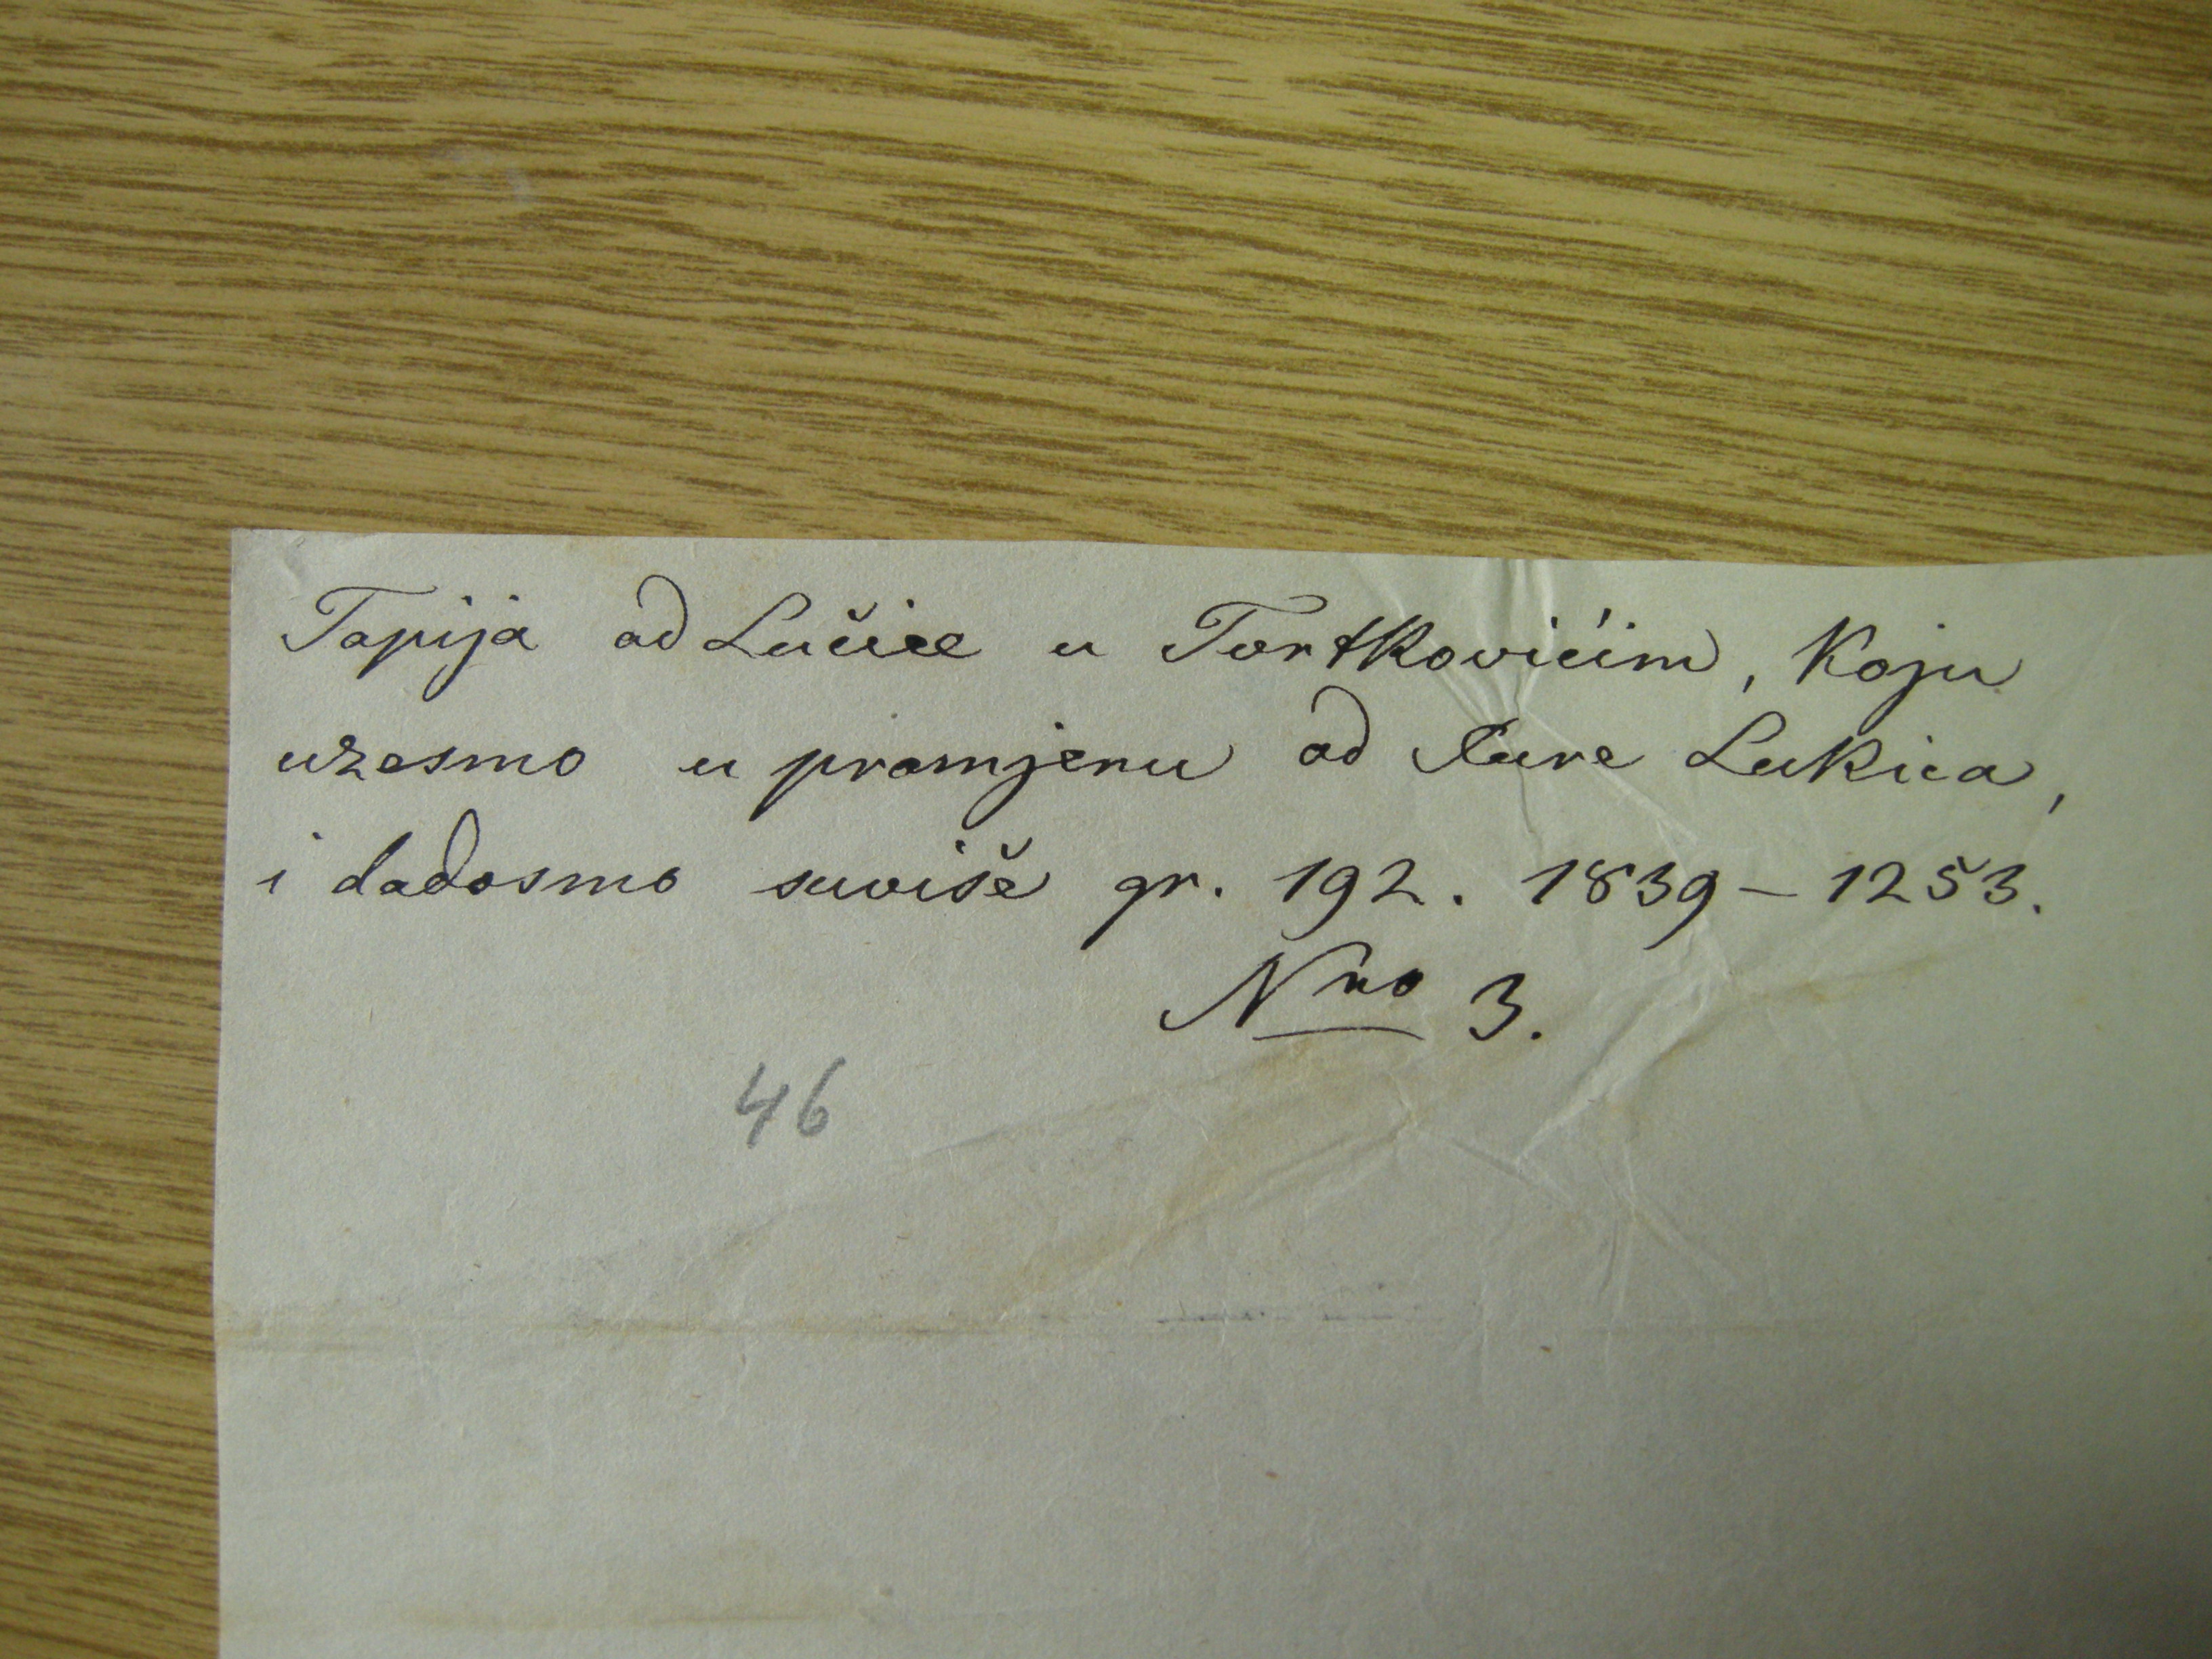 Tapija od Lučice u Tvrtkovićim, Koju
uzesmo u promjenu od Jure Lukica,
i dadosmo suviše gr. 192. 1839 - 1253.
Nro 3.
46